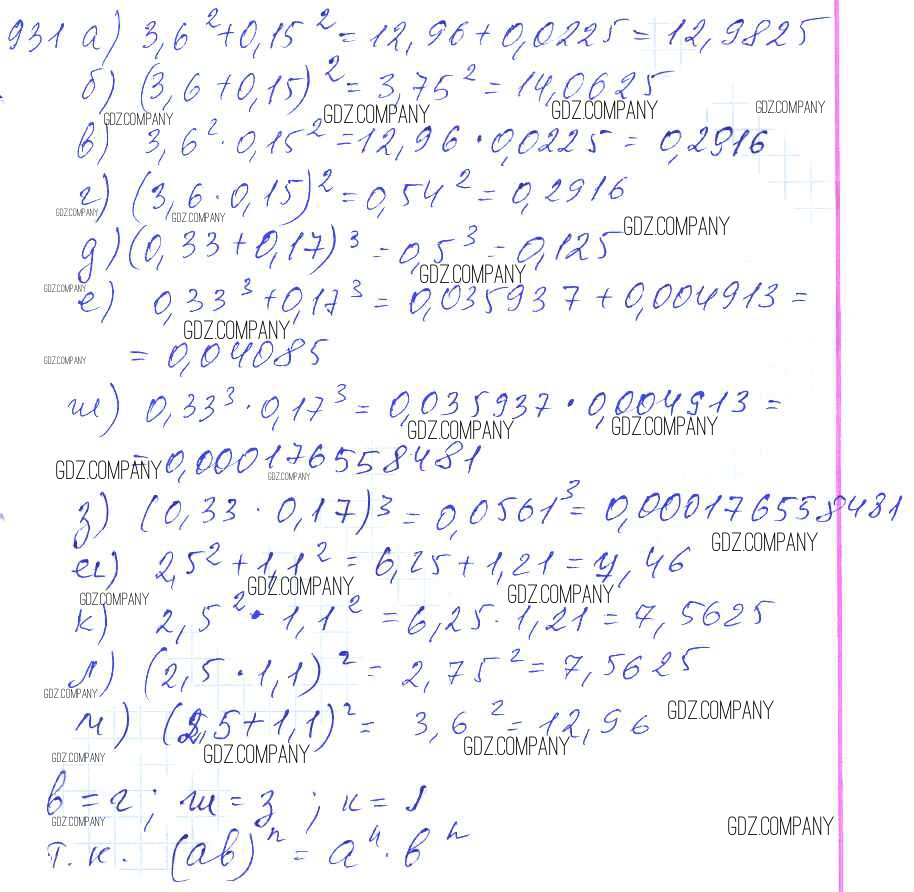 931 а) 3,6² + 0,15² = 12,96 + 0,0225 = 12,9825
б) (3,6 + 0,15)² = 3,75² = 14,0625
GDZ.COMPANY GDZ.COMPANY GDZ.COMPANY GDZ.COMPANY
в) 3,6² · 0,15² = 12,96 · 0,0225 = 0,2916
г) (3,6 · 0,15)² = 0,54² = 0,2916
GDZ.COMPANY GDZ.COMPANY GDZ.COMPANY
д) (0,33 + 0,17)³ = 0,5³ = 0,125
GDZ.COMPANY GDZ.COMPANY
е) 0,33³ + 0,17³ = 0,035937 + 0,004913 =
GDZ.COMPANY
= 0,04085
GDZ.COMPANY
ж) 0,33³ · 0,17³ = 0,035937 · 0,004913 =
GDZ.COMPANY GDZ.COMPANY
= 0,000176558481
GDZ.COMPANY GDZ.COMPANY
з) (0,33 · 0,17)³ = 0,0561³ = 0,000176558481
GDZ.COMPANY
и) 2,5² + 1,1² = 6,25 + 1,21 = 7,46
GDZ.COMPANY GDZ.COMPANY GDZ.COMPANY
к) 2,5² · 1,1² = 6,25 · 1,21 = 7,5625
л) (2,5 · 1,1)² = 2,75² = 7,5625
GDZ.COMPANY GDZ.COMPANY
м) (2,5 + 1,1)² = 3,6² = 12,96
GDZ.COMPANY GDZ.COMPANY GDZ.COMPANY
в = г ; ж = з ; к = л
GDZ.COMPANY GDZ.COMPANY
т. к. (ab)ⁿ = aⁿ · bⁿ